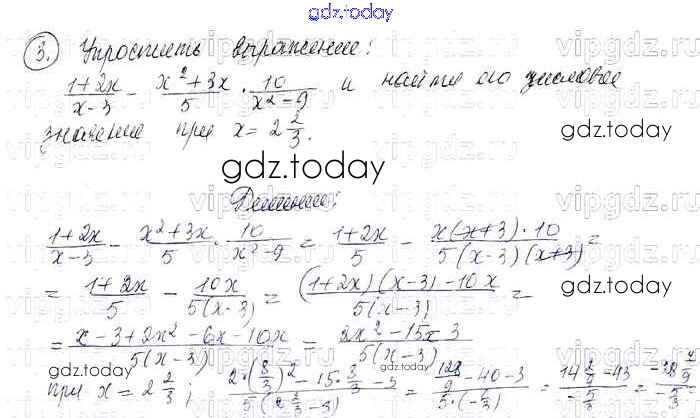 gdz.today
3. Упростить выражение:
(1+2x)/(x-3) - (x²+3x)/5 · 10/(x²-9) и найти его числовое
значение при x = 2 2/3.
gdz.today
Решение:
(1+2x)/(x-3) - (x²+3x)/5 · 10/(x²-9) = (1+2x)/5 - (x(x+3)·10)/(5(x-3)(x+3)) =
= (1+2x)/5 - 10x/(5(x-3)) = ((1+2x)(x-3)-10x)/(5(x-3)) =
gdz.today
= (x-3+2x²-6x-10x)/(5(x-3)) = (2x²-15x 3)/(5(x-3))
при x = 2 2/3; (2·(8/3)²-15·8/3-3)/(5(2 2/3-3)) = (128/9-40-3)/(5·(-5/3)) = (14 2/9-43)/(-5/3) =
gdz.today